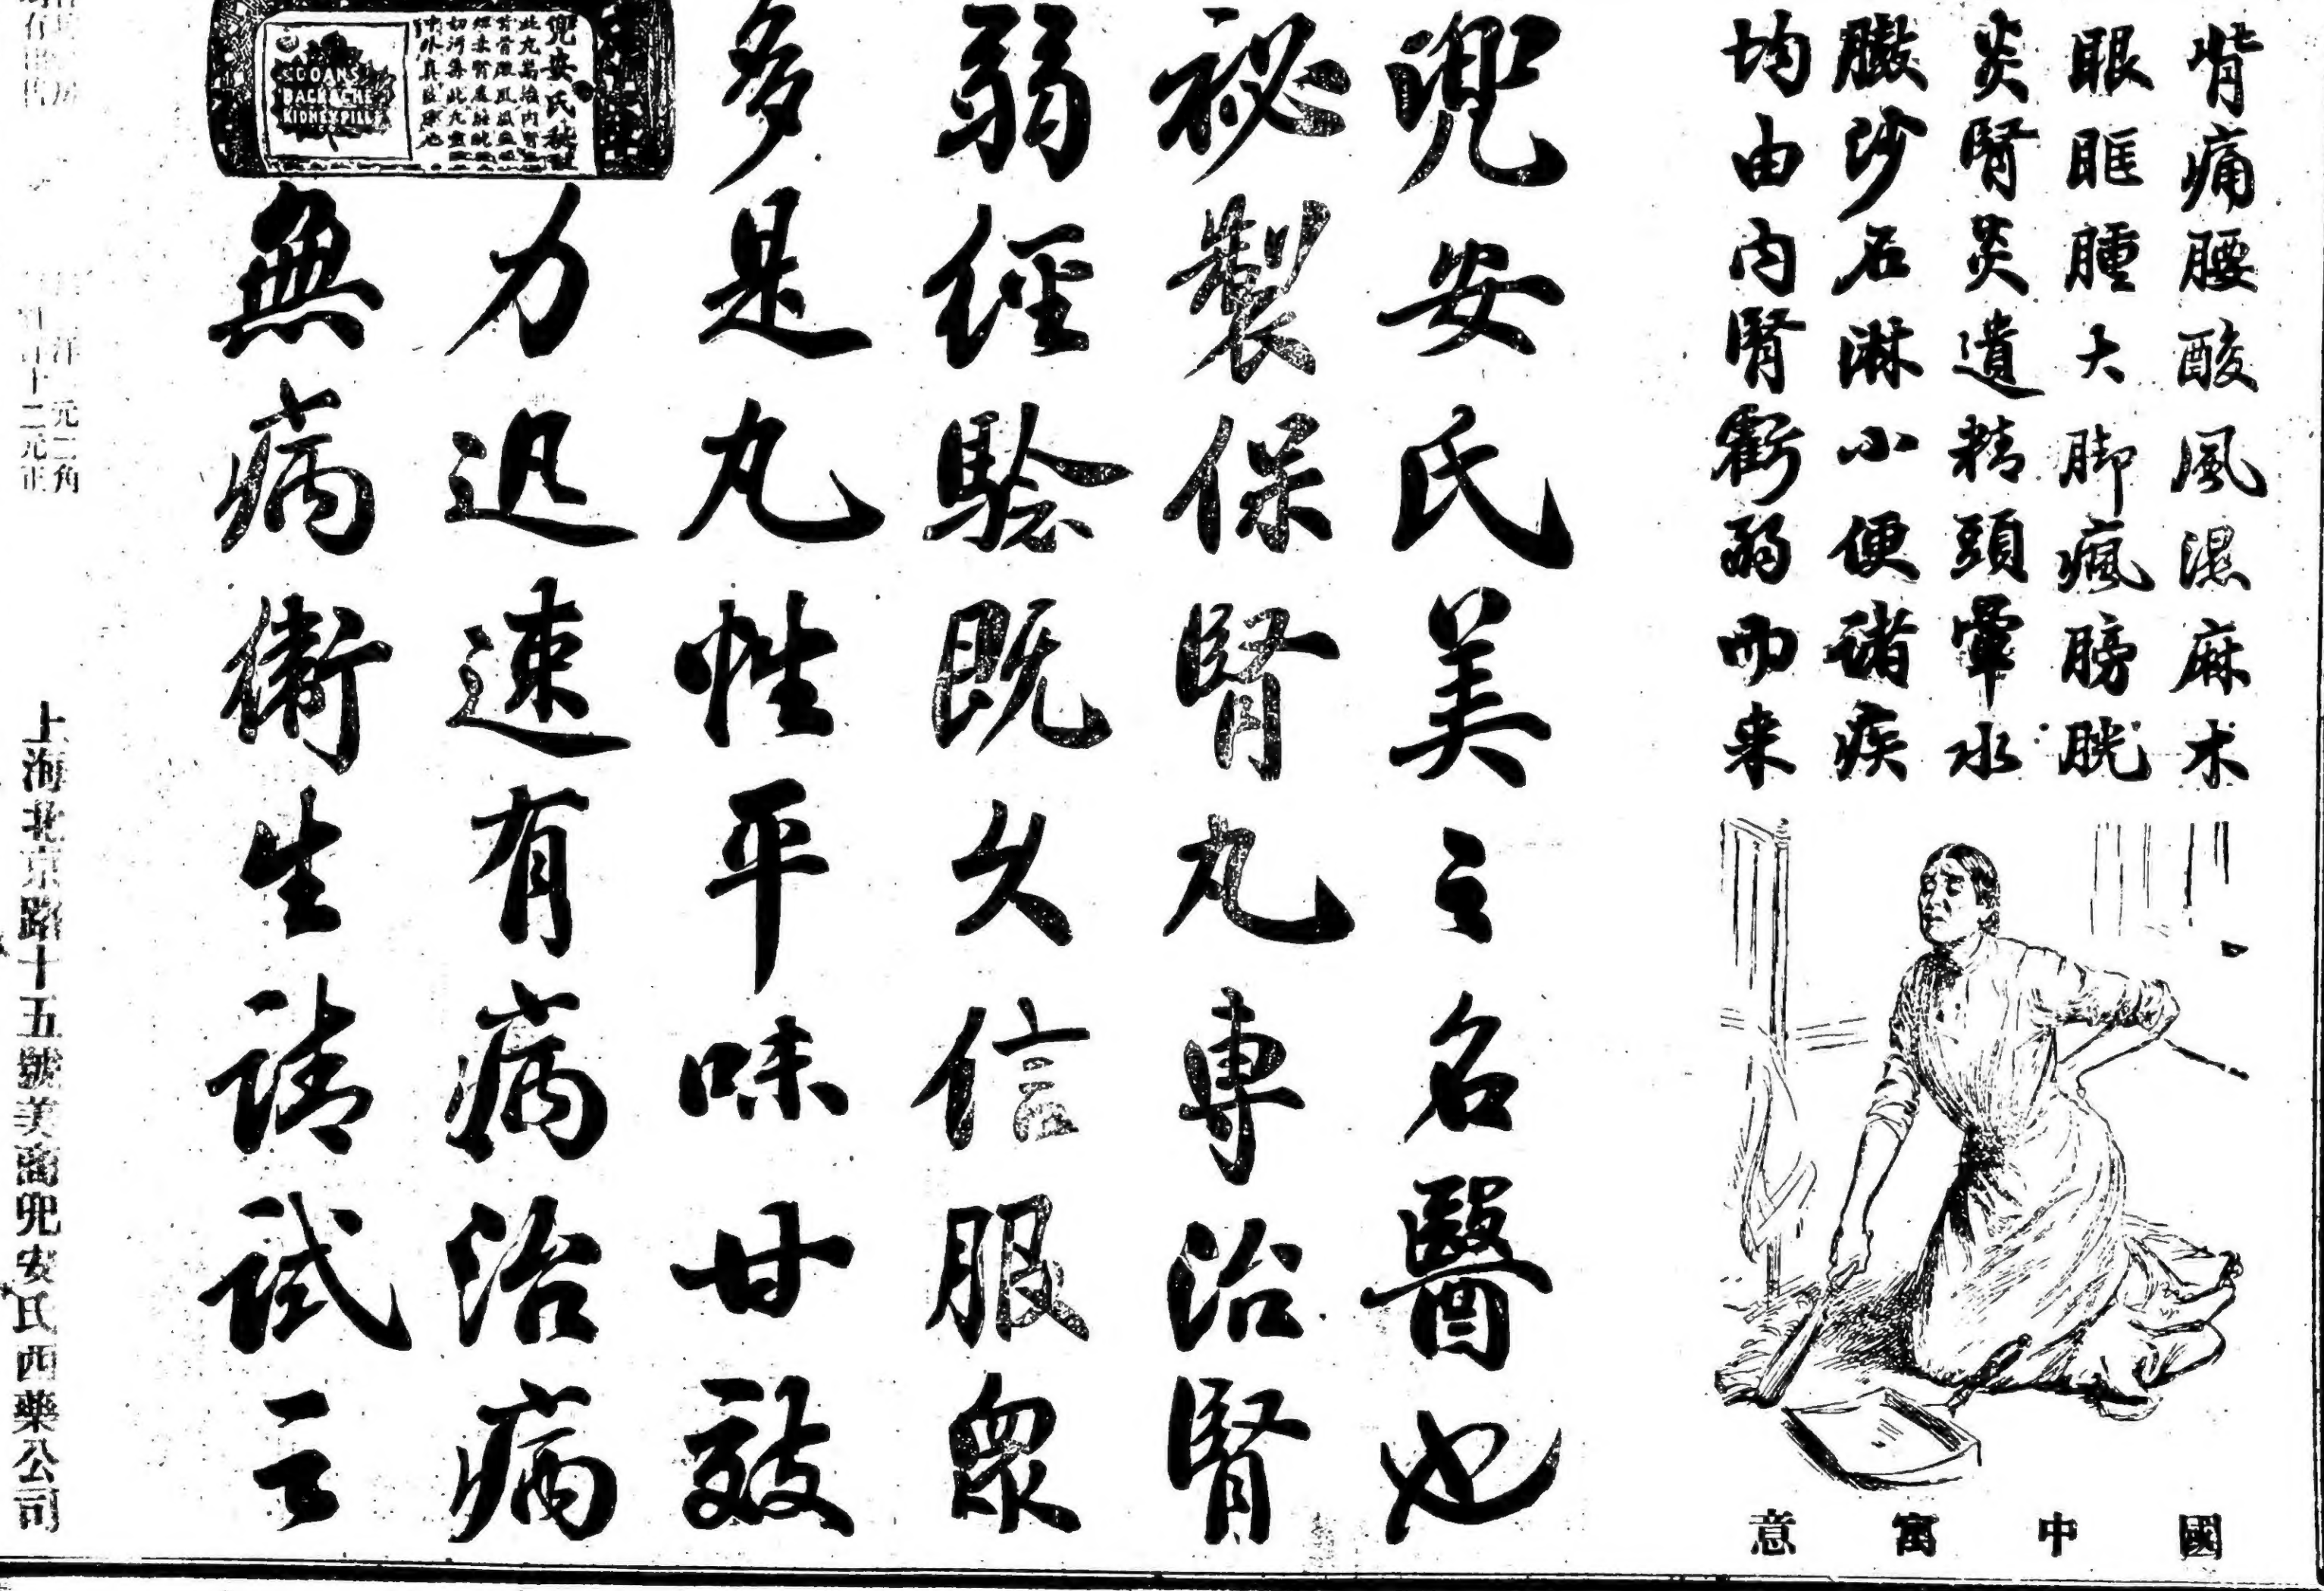 背痛腰酸風濕麻木
眼眶腫大脚瘋膀胱
炎腎炎遺精頭暈水
臌沙石淋小便諸疾
均由内腎虧弱而来
國中寓意
兜安氏美之名醫也
祕製保腎丸專治腎
弱經驗既久信服衆
多是丸性平味甘效
力迅速有病治病
無病衛生請試之
兜安氏秘製
BACKACHE
KIDNEY PILLS
元二角
十二元正
上海北京路十五號美商兜安氏西藥公司